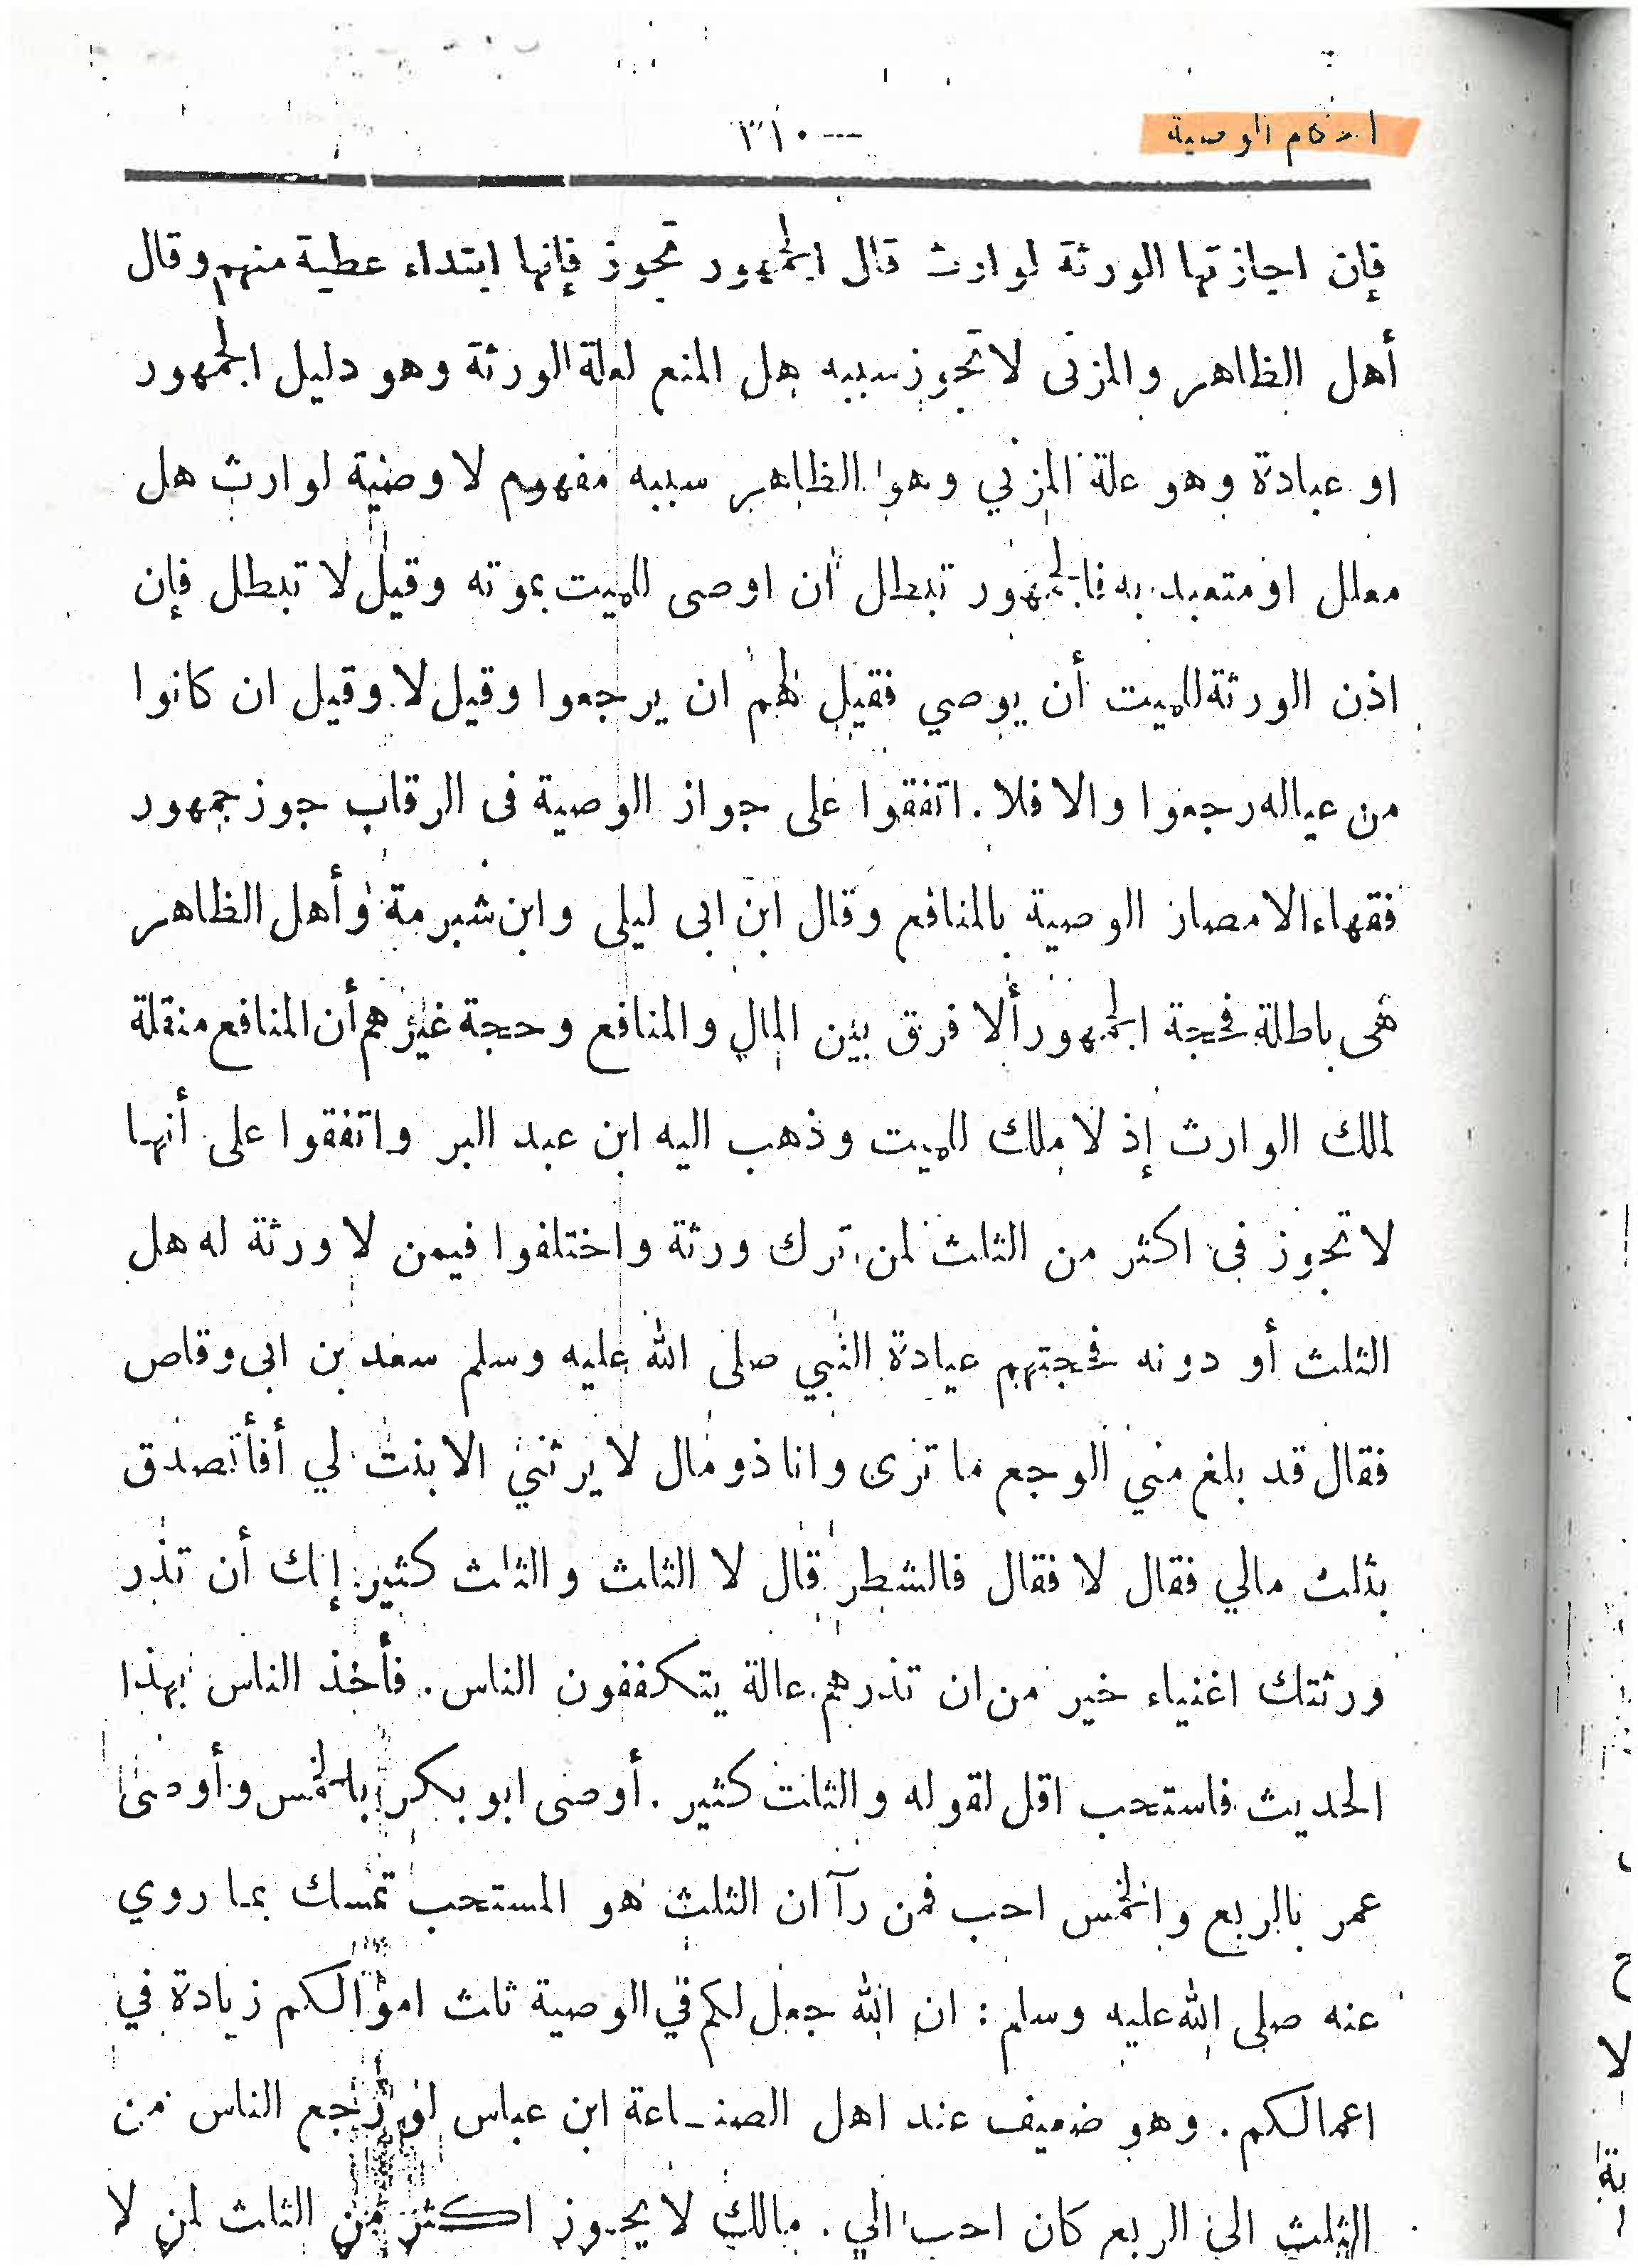 احكام الوصية
٣١٠ —
فإن اجازتها الورثة لوارث قال الجمهور تجوز فإنها ابتداء عطية منهم وقال
أهل الظاهر والمزنى لا تجوز سببه هل المنع لعلة الورثة وهو دليل الجمهور
او عبادة وهو علة المزني وهو الظاهر سببه مفهوم لا وصية لوارث هل
معلل او متعبد به فالجمهور تبطل أن اوصى للميت بموته وقيل لا تبطل فإن
اذن الورثة للميت أن يوصي فقيل لهم ان يرجعوا وقيل لا وقيل ان كانوا
من عياله رجعوا والا فلا . اتفقوا على جواز الوصية فى الرقاب جوز جمهور
فقهاء الامصار الوصية بالمنافع وقال ابن ابى ليلى وابن شبرمة وأهل الظاهر
هى باطلة فحجة الجمهور ألا فرق بين المال والمنافع وحجة غيرهم أن المنافع منقلة
لملك الوارث إذ لا ملك للميت وذهب اليه ابن عبد البر واتفقوا على أنها
لا تجوز فى اكثر من الثلث لمن ترك ورثة واختلفوا فيمن لا ورثة له هل
الثلث أو دونه فحجتهم عيادة النبي صلى الله عليه وسلم سعد بن ابى وقاص
فقال قد بلغ مني الوجع ما ترى وانا ذو مال لا يرثني الا بنت لي أفأتصدق
بثلث مالي فقال لا فقال فالشطر قال لا الثلث والثلث كثير إنك أن تذر
ورثتك اغنياء خير من ان تذرهم عالة يتكففون الناس . فأخذ الناس بهذا
الحديث فاستحب اقل لقوله والثلث كثير . أوصى ابو بكر بالخمس وأوصى
عمر بالربع والخمس احب فمن رآ ان الثلث هو المستحب تمسك بما روي
عنه صلى الله عليه وسلم : ان الله جعل لكم في الوصية ثلث اموالكم زيادة في
اعمالكم . وهو ضعيف عند اهل الصنـاعة ابن عباس لو رجع الناس من
الثلث الى الربع كان احب الي . مالك لا يجوز اكثر من الثلث لمن لا